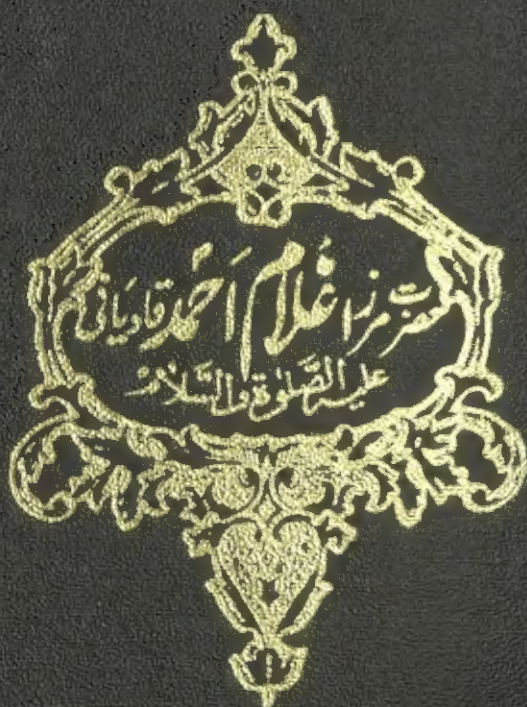 حضرت مرزا غلام احمد قادیانی
علیہ الصلوٰۃ والسلام